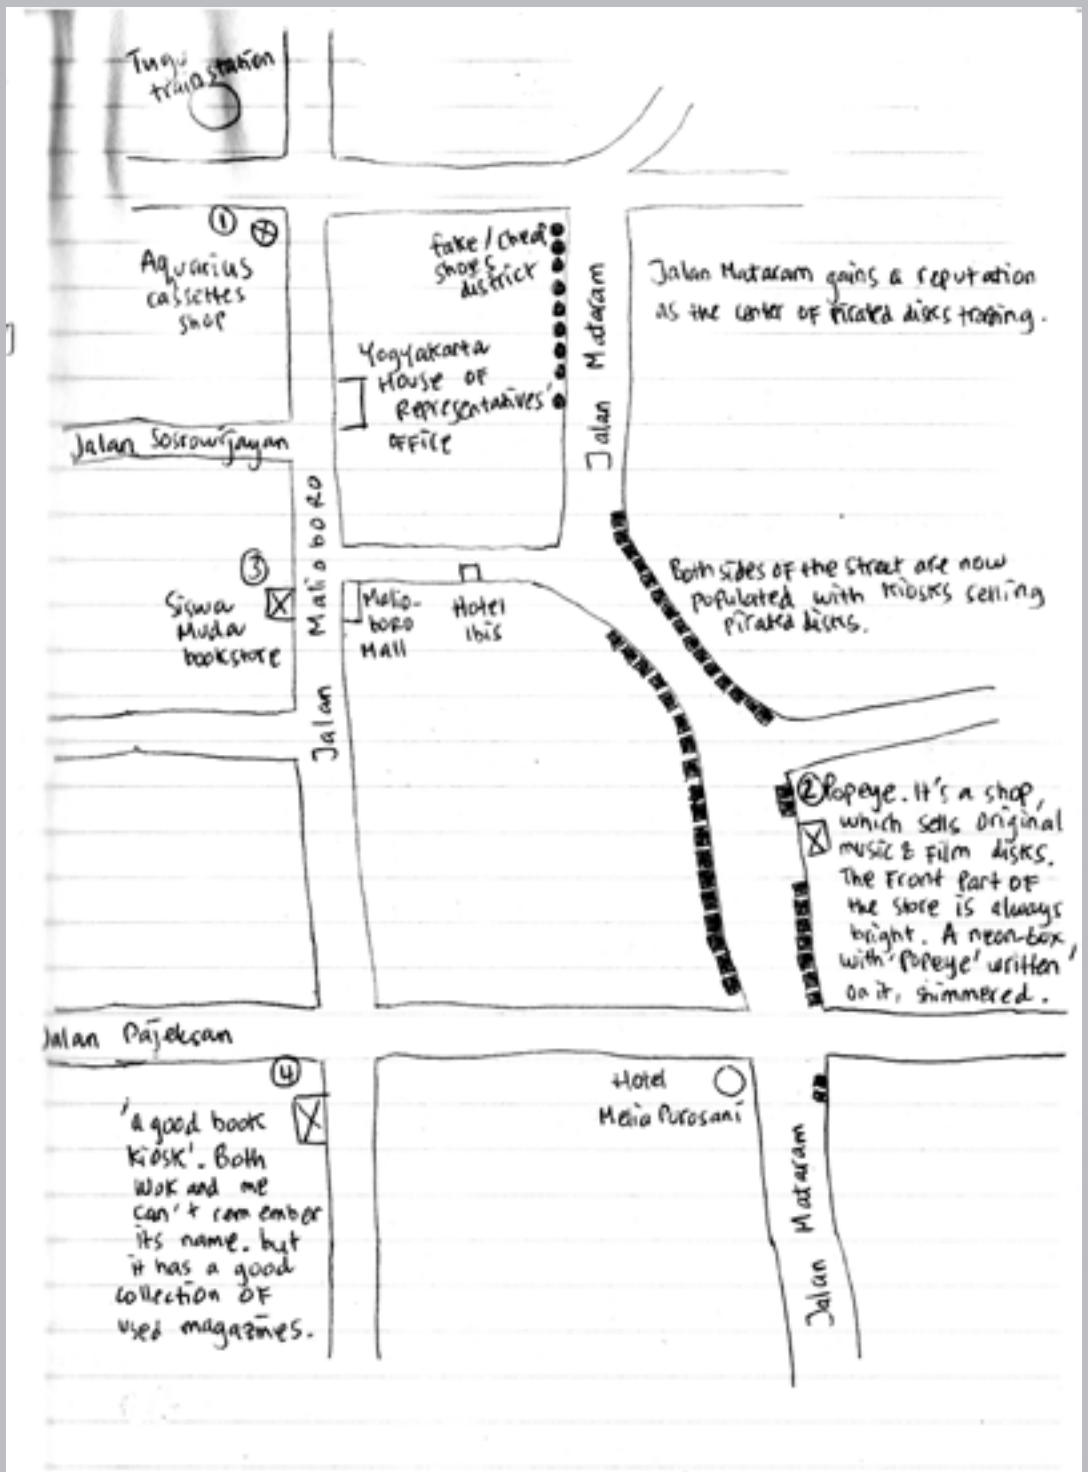 Tugu
train station
①
Aquarius
cassettes
shop
fake / cheap
shoes
district
Jalan Mataram
Jalan Mataram gains a reputation
as the center of pirated disks trading.
Yogyakarta
House of
Representatives'
office
Jalan Sosrowijayan
Jalan Malioboro
③
Siswa
Muda
bookstore
Malio-
boro
Mall
Hotel
Ibis
Both sides of the street are now
populated with kiosks selling
pirated disks.
② Popeye. It's a shop,
which sells original
music & film disks.
The front part of
the store is always
bright. A neon-box,
with 'Popeye' written
on it, shimmered.
Jalan Pajeksan
④
'a good book
kiosk'. Both
Wok and me
can't remember
its name. but
it has a good
collection of
used magazines.
Hotel
Melia Purosani
Jalan Mataram